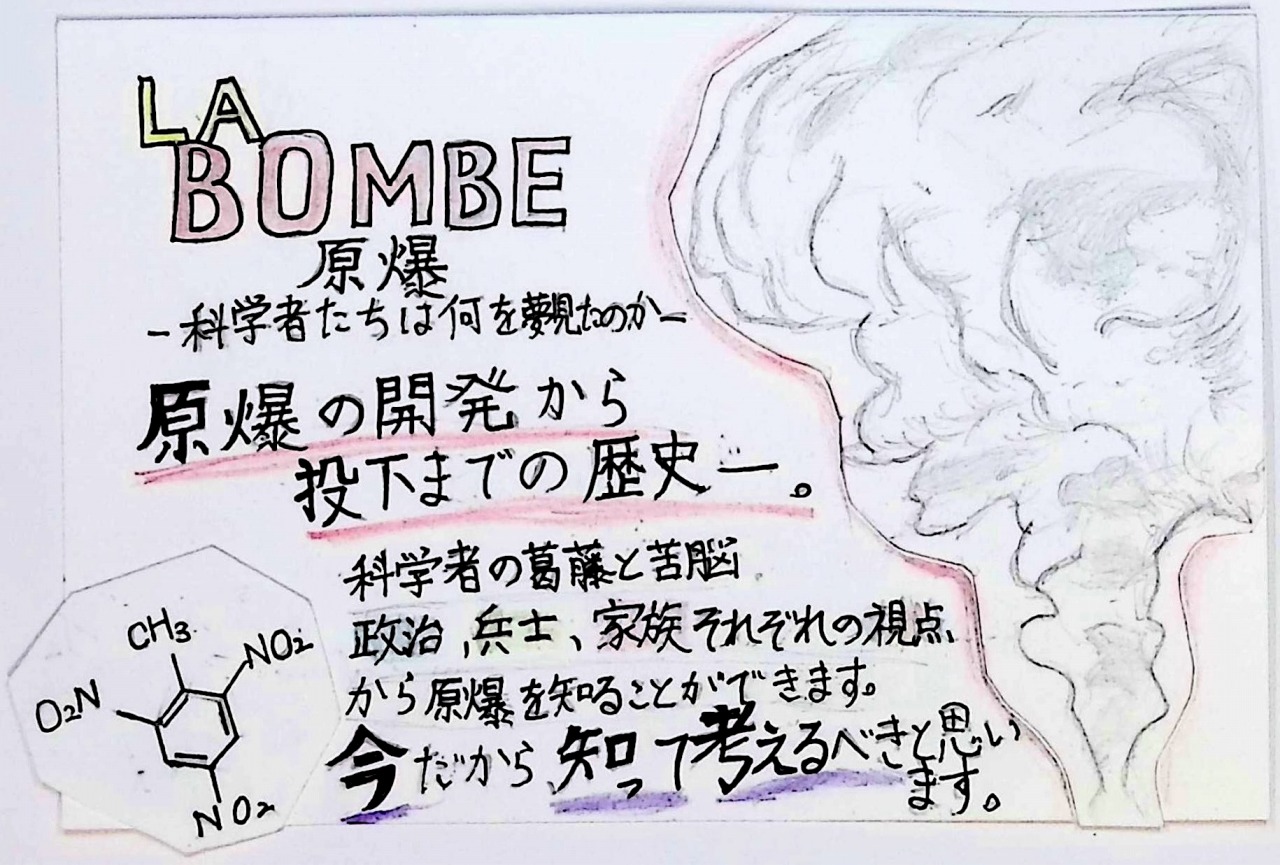 LA
BOMBE
原爆
-科学者たちは何を夢見たのか-
原爆の開発から
投下までの歴史―。
科学者の葛藤と苦脳
政治、兵士、家族それぞれの視点
から原爆を知ることができます。
今だから知って考えるべきと思い
ます。
CH3
NO2
O2N
NO2